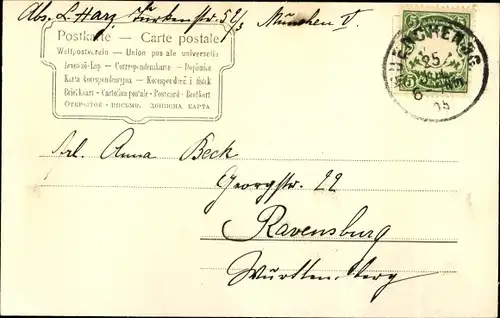 Abs. L. Harz Türkenstr. 52/3 München V.
Postkarte — Carte postale
Weltpostverein — Union postale universelle
Levelező-Lap — Correspondenzkarte — Dopisnica
Karta korespondencyjna — Korespondenční lístek
Briefkaart — Cartolina postale — Postcard — Brevkort
ОТКРЫТОЕ ПИСЬМО. ДОПИСНА КАРТА
5 5
5 5
MUENCHEN
25
6
05
Frl. Anna Beck
Georgstr. 22
Ravensburg
Württemberg